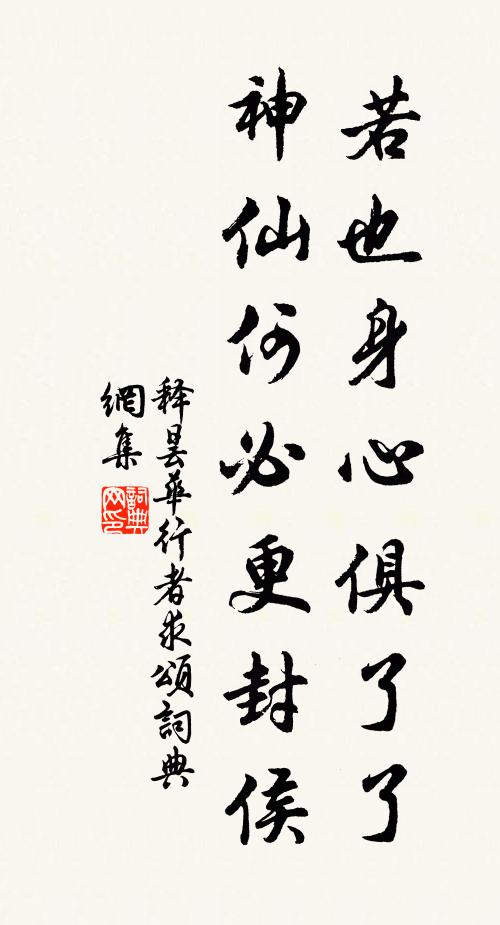 若也身心俱了了
神仙何必更封侯
释昙华行者求颂词典
網集
詞典
网印